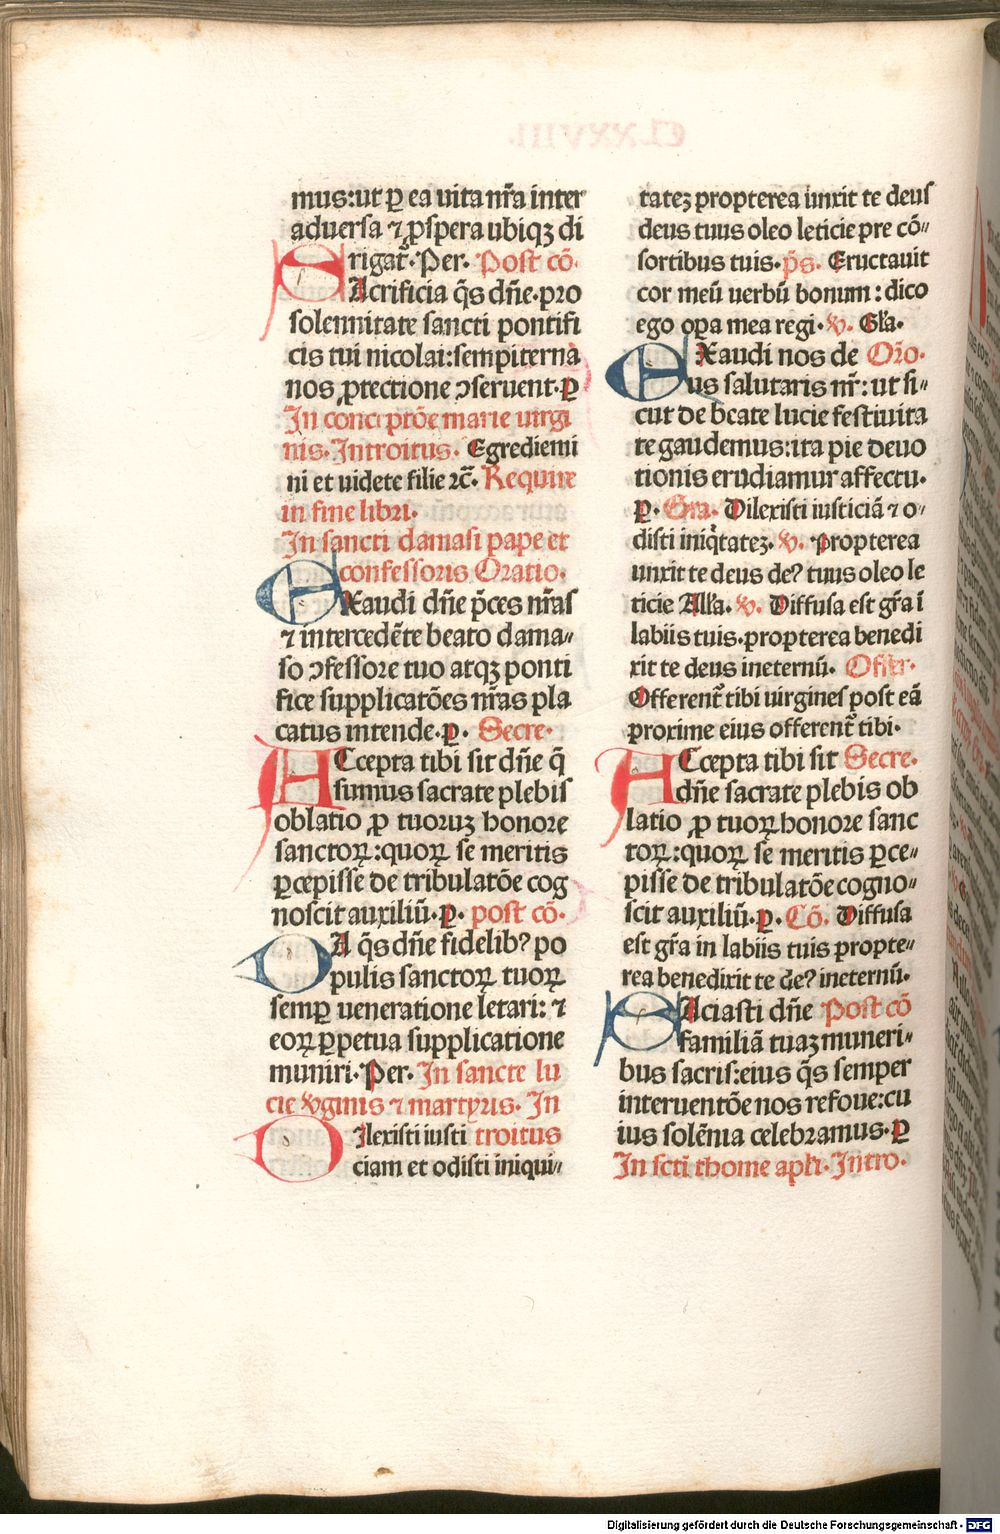 mus:ut ꝑ ea uita nr̄a inter
aduersa ⁊ ꝓspera ubiqꝫ di
rigat᷑. Per. Post cō.
SAcrificia q̄s dn̄e. pro
solennitate sancti pontifi
cis tui nicolai:sempiterna
nos ꝓtectione ↄseruent. ꝑ
In conceptōe marie uirgi
nis. Introitus. Egredemi
ni et uidete filie ⁊c̄. Require
in fine libri.
In sancti damasi pape et
confessoris Oratio.
EXaudi dn̄e p̄ces nr̄as
⁊ intercedēte beato dama⸗
so ↄfessore tuo atqꝫ ponti
fice supplicatōes nr̄as pla
catus intende. ꝑ. Secre.
ACcepta tibi sit dn̄e q̄
sumus sacrate plebis
oblatio ꝓ tuoruꝫ honore
sanctoꝝ:quoꝝ se meritis
ꝑcepisse de tribulatōe cog
noscit auxiliū. ꝑ. post cō.
DA q̄s dn̄e fidelibꝰ po
pulis sanctoꝝ tuoꝝ
semꝑ ueneratione letari: ⁊
eoꝝ ꝑpetua supplicatione
muniri. Per. In sancte lu
cie v̓ginis ⁊ martyris. In
DIlexisti iusti troitus
ciam et odisti iniqui⸗
tateꝫ propterea unxit te deus
deus tuus oleo leticie pre cō⸗
sortibus tuis. p̄s. Eructauit
cor meū uerbū bonum: dico
ego oꝑa mea regi. v̓. Gl̄a.
EXaudi nos de Or̄o.
us salutaris nr̄: ut si⸗
cut de beate lucie festiuita
te gaudemus:ita pie deuo
tionis erudiamur affectu.
ꝑ. Gra. Dilexisti iusticiā ⁊ o⸗
disti iniq̇tateꝫ. v̓. Propterea
unxit te deus deꝰ tuus oleo le
ticie All̄a. v̓. Diffusa est gr̄a ī
labiis tuis. propterea benedi
xit te deus ineternū. Offer.
Offerent᷑ tibi uirgines post eā
proxime eius offerent᷑ tibi.
ACcepta tibi sit Secre.
dn̄e sacrate plebis ob
latio ꝓ tuoꝝ honore sanc
toꝝ:quoꝝ se meritis ꝑce⸗
pisse de tribulatōe cogno⸗
scit auxiliū. ꝑ. Cō. Diffusa
est gr̄a in labiis tuis propte⸗
rea benedixit te deꝰ ineternū.
SAciasti dn̄e Post cō
familiā tuaꝫ muneri⸗
bus sacris:eius q̄s semper
interuentōe nos refoue:cu
ius solēnia celebramus. ꝑ
In scti thome apl̄i. Intro.
CLXXVIII.
Digitalisierung gefördert durch die Deutsche Forschungsgemeinschaft - DFG